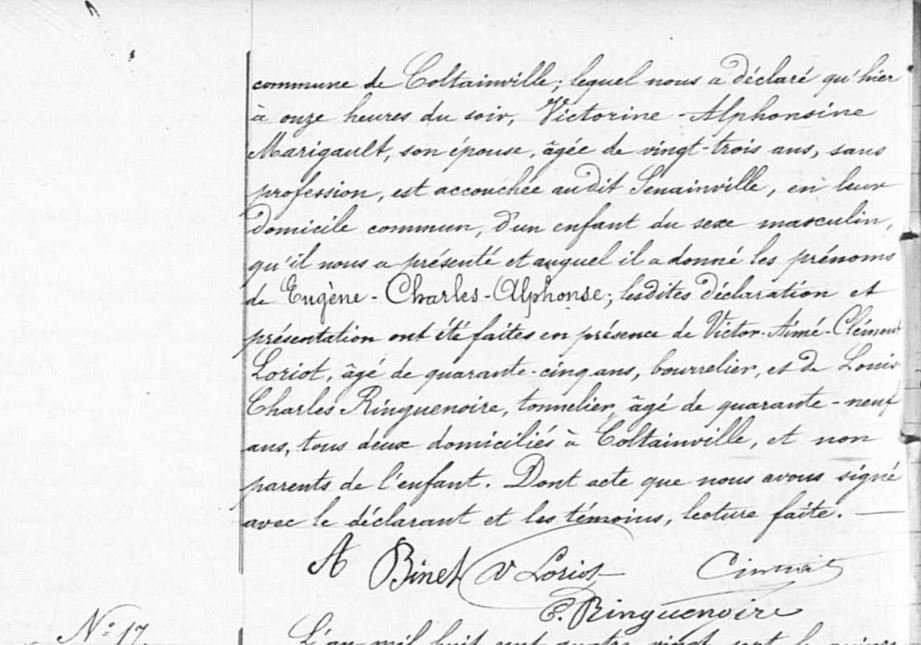 commune de Coltainville; lequel nous a déclaré qu'hier
à onze heures du soir, Victorine-Alphonsine
Marigault, son épouse, âgée de vingt-trois ans, sans
profession, est accouchée audit Senainville, en leur
domicile commun, d'un enfant du sexe masculin,
qu'il nous a présenté et auquel il a donné les prénoms
de Eugène-Charles-Alphonse; lesdites déclaration et
présentation ont été faites en présence de Victor-Aimé-Clément
Loriot, âgé de quarante-cinq ans, bourrelier, et de Louis
Charles Ringuenoire, tonnelier, âgé de quarante-neuf
ans, tous deux domiciliés à Coltainville, et non
parents de l'enfant. Dont acte que nous avons signé
avec le déclarant et les témoins, lecture faite. —
A Binet V Loriot
C. Ringuenoire
N° 17
L'an mil huit cent quatre vingt sept le